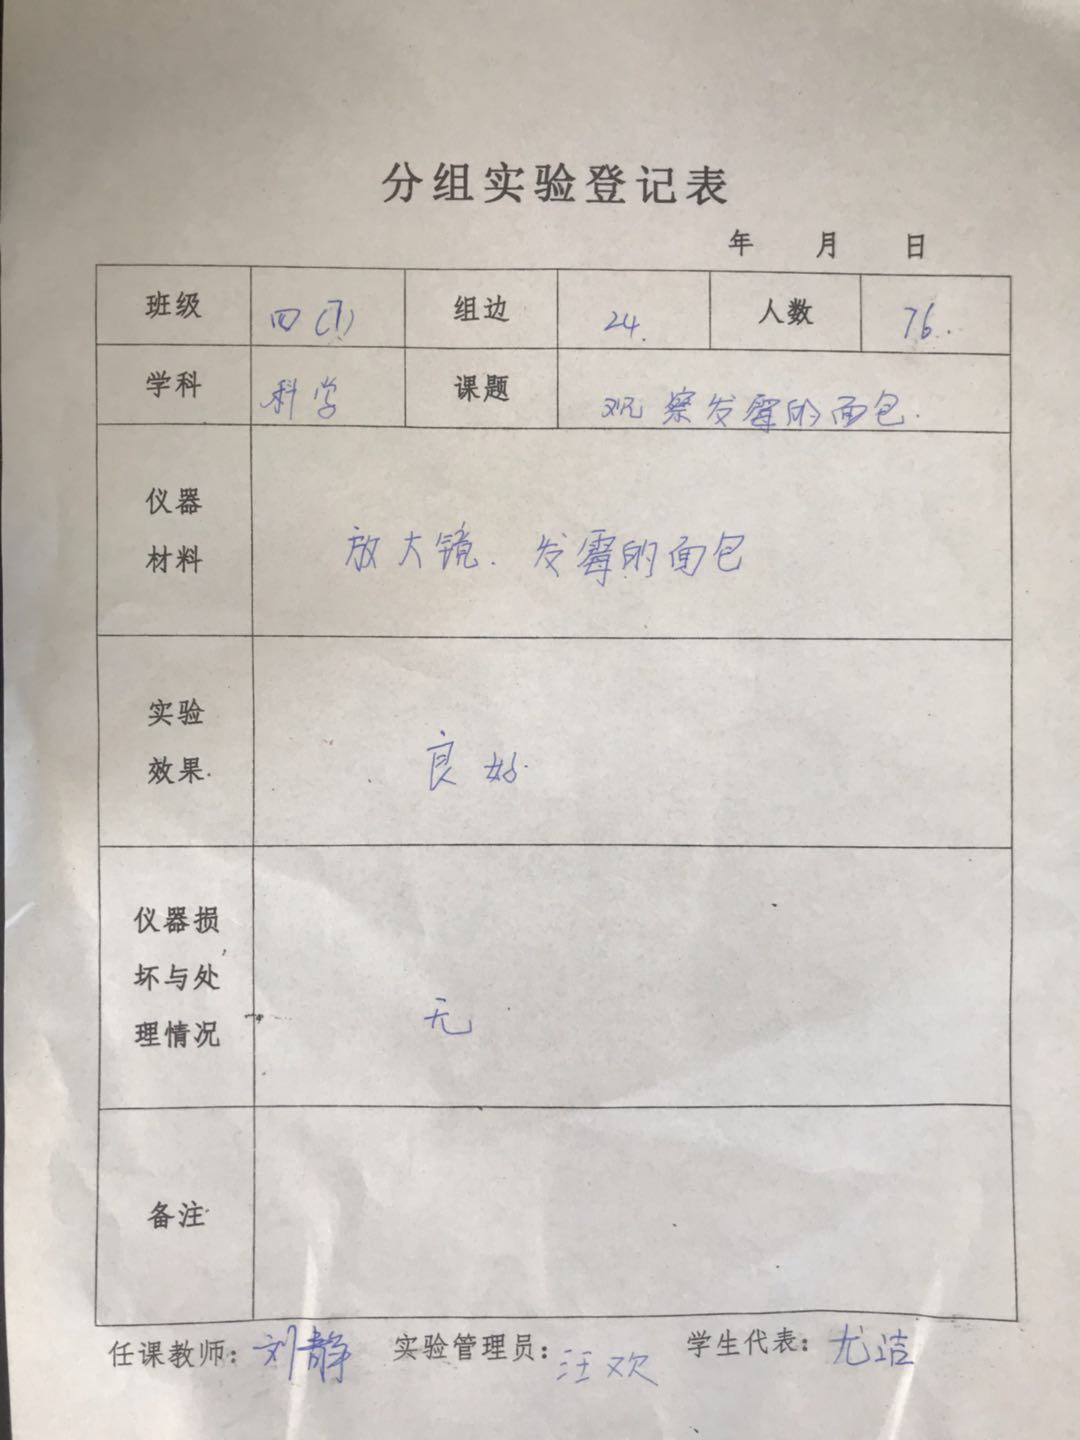 分组实验登记表
年 月 日
班级 四(1) 组边 24. 人数 76.
学科 科学 课题 观察发霉的面包.
仪器
材料
放大镜. 发霉的面包
实验
效果
良好.
仪器损
坏与处
理情况
无
备注
任课教师: 刘静 实验管理员: 汪欢 学生代表: 尤洁